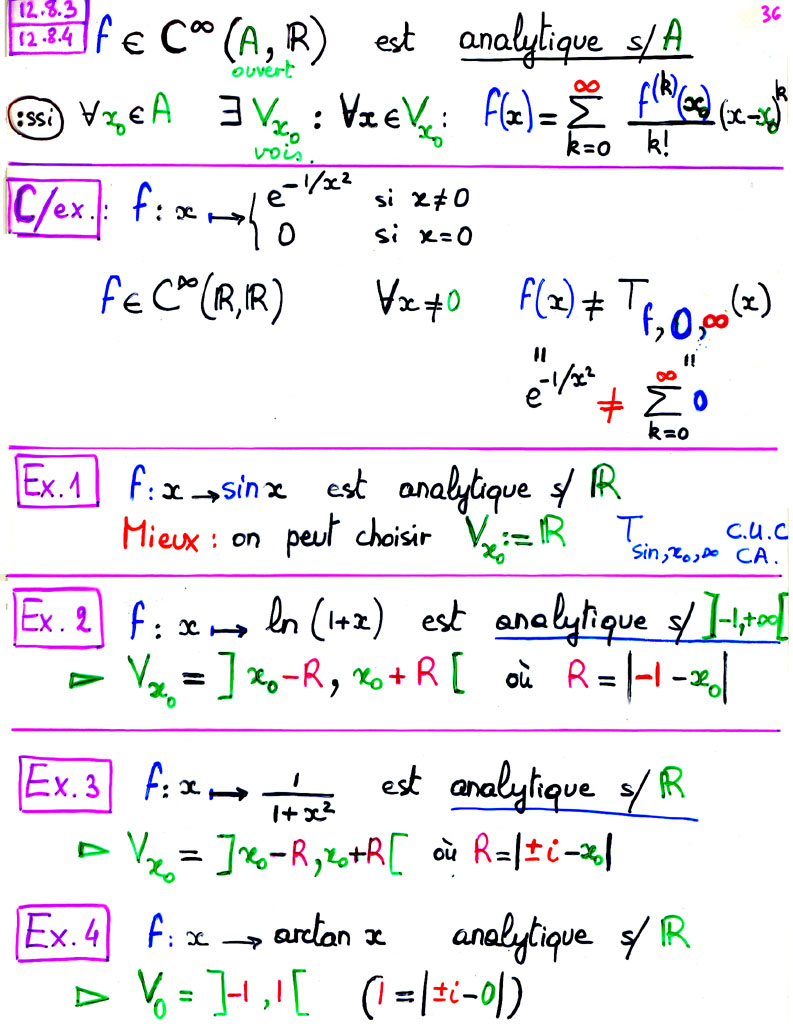 12.8.3
36
12.8.4 f ∈ C^∞ (A, ℝ) est analytique s/ A
ouvert
:ssi ∀x₀ ∈ A ∃ V_{x₀} : ∀x ∈ V_{x₀} : f(x) = ∑_{k=0}^{∞} f^{(k)}(x₀)/k! (x-x₀)^k
vois.
C/ex.: f : x ↦ { e^{-1/x²} si x≠0
0 si x=0
f ∈ C^∞(ℝ,ℝ) ∀x ≠ 0 f(x) ≠ T_{f,0,∞}(x)
" "
e^{-1/x²} ≠ ∑_{k=0}^{∞} 0
Ex.1 f: x → sin x est analytique s/ ℝ
Mieux : on peut choisir V_{x₀} := ℝ T_{sin,x₀,∞} C.U.C
CA.
Ex. 2 f: x ↦ ln (1+x) est analytique s/ ]-1,+∞[
▻ V_{x₀} = ] x₀-R, x₀+R [ où R = |-1-x₀|
Ex.3 f: x ↦ 1/(1+x²) est analytique s/ ℝ
▻ V_{x₀} = ]x₀-R, x₀+R[ où R=|±i-x₀|
Ex.4 f: x → arctan x analytique s/ ℝ
▻ V₀ = ]-1, 1[ (1=|±i-0|)